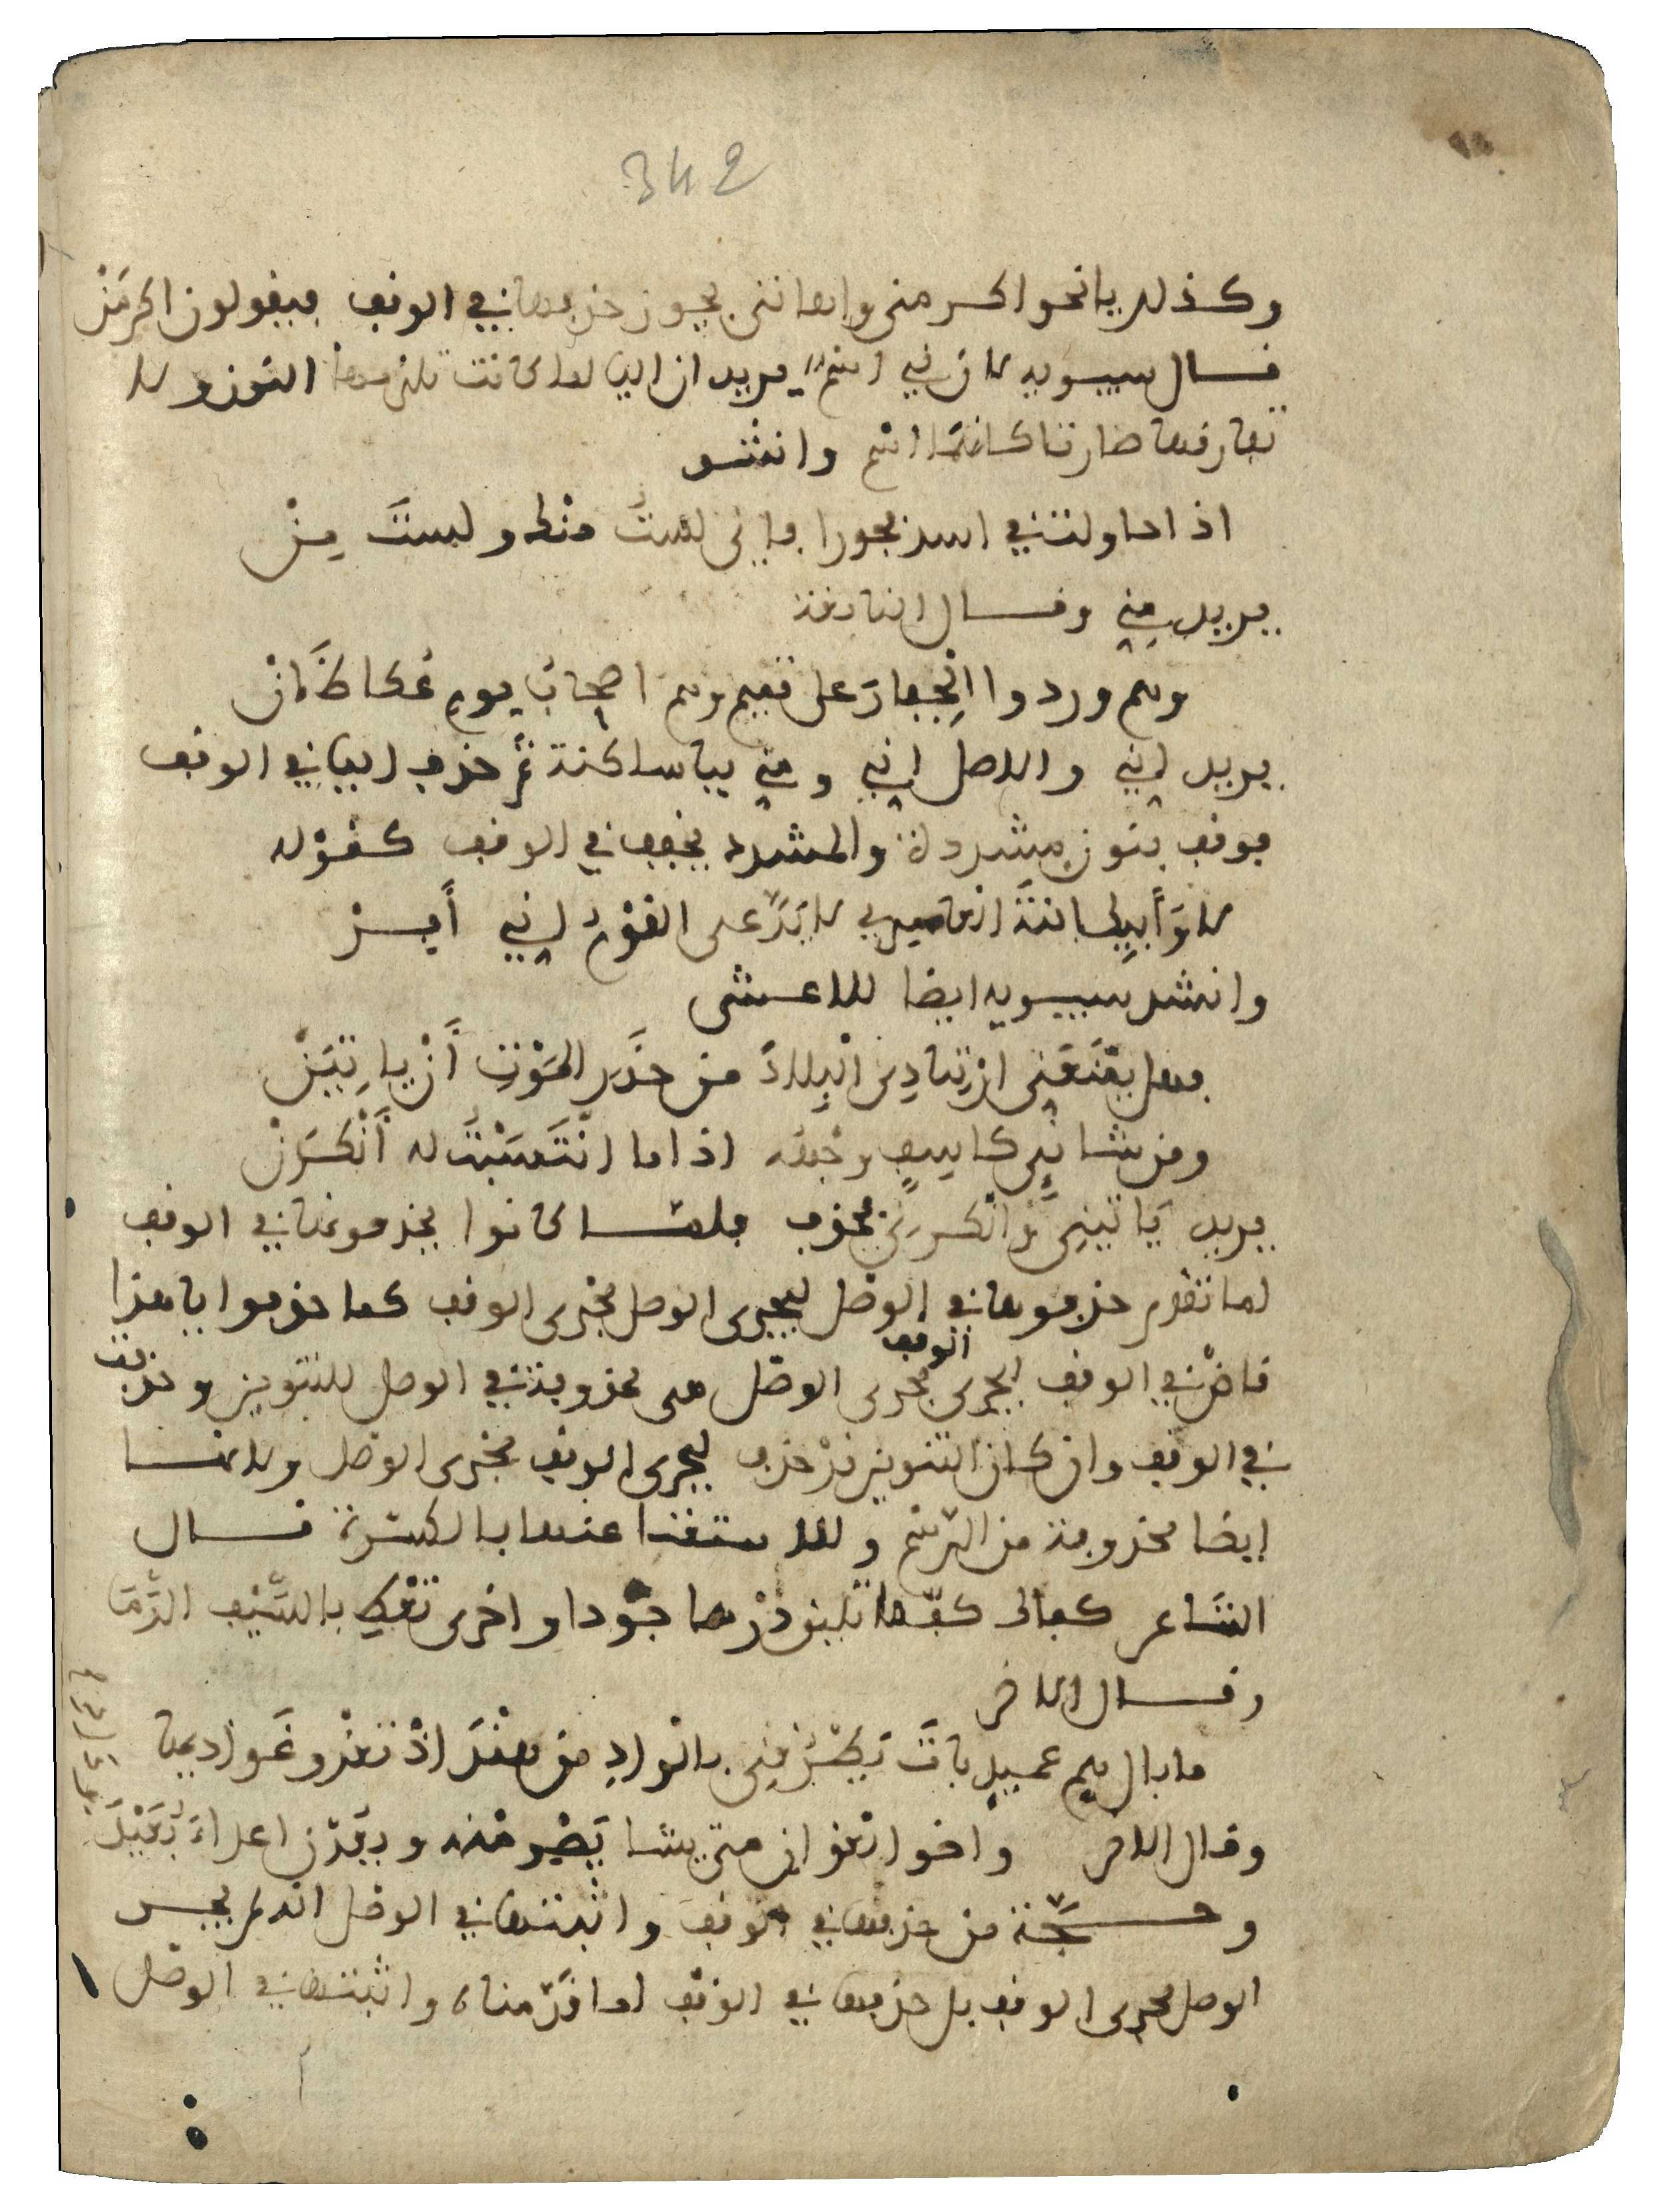 342
وكذلك يا نحو اكرمني واهانني يجوز حذفها في الوقف فيقولون اكرمَنْ
قال سيبويه لان ني اسم يريد ان اليا لما كانت تلزمها النون ولا
تفارقها صارتا كانهما اسم وانشد
اذا حاولت في اسد فجورا فاني لستُ منك ولستَ مِنْ
يريد مِنِّي وقال النابغة
وهم وردوا الجِفارَ على تميم وهم اصحابُ يومِ عُكاظَ اِنْ
يريد اِني والاصل اِني ومِني بيا ساكنة ثمَّ حذف اليا في الوقف
فوقف بنون مشددة والمشدد يخفف في الوقف كقوْله
لا وَأَبِيكِ ابنةَ العامري لا يَدَّعي القوْمُ اِنِّي أَفِــرْ
وانشد سيبويه ايضا للاعشى
فهل يمْنَعَنِّي ارْتِيادِي البِلادَ من حذَرِ الموْتِ أَنْ ياتِيَنْ
ومن شانِئٍ كاسِفٍ وجْهُه اذا ما انْتَسَبْتُ له أَنْكَرَنْ
يريد يَاتيني وأنكرني فحذف فلمَّا كانوا يحذفونها في الوقف
لما تقدم حذفوها في الوصْل ليجرى الوصل مجرى الوقف كما حذفوا يا هذا
قاضْ في الوقف ليجرى الوقف مجرى الوصْل هى محذوفة في الوصل للتنوين وحذفت
في الوقف وان كان التنوين قدْ حذف ليجرى الوقف مجْرى الوصْل ولانها
ايضا محذوفة من الرسْم وللاستغنا عنها بالكسْرة قال
الشاعر كفاك كفٌّ ما تليق دِرْهما جُودا واخرى تعْطِ بالسَّيْف الدَّمَا
وقال الاخر
ما بال هم عميدٍ باتَ يَطْرُقني بالوادِ من هنْدَ اذْ تعْدُو عَواديها
وقال الاخر واخو الغوانِ متى يشا يَصْرِمْنه ويعُدْن اعداءَ بُعَيْدَ
وحجَّة من حذفها في الوقف واثبتها في الوصْل انه لم يجر
الوصل مجرى الوقف بل حذفها في الوقف لما قدّمناه واثبتها في الوصْل